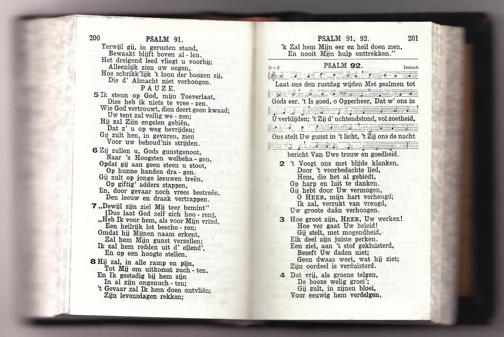 200
PSALM 91.
Terwijl gij, in gerusten stand,
Bewaakt blijft boven al - len.
Het dreigend leed vliegt u voorbij;
Alleenlijk zien uw oogen,
Hoe schrikk'lijk 't loon der boozen zij,
Die d' Almacht niet verhoogen.
PAUZE.
5 Ik steun op God, mijn Toeverlaat,
Dies heb ik niets te vree - zen.
Wie God vertrouwt, dien deert geen kwaad;
Uw tent zal veilig we - zen;
Hij zal Zijn engelen gebiên,
Dat z' u op weg bevrijden;
Gij zult hen, in gevaren, zien
Voor uw behoud'nis strijden.
6 Zij zullen u, Gods gunstgenoot,
Naar 's Hoogsten welbeha - gen,
Opdat gij aan geen steen u stoot,
Op hunne handen dra - gen.
Gij zult op jonge leeuwen treên,
Op giftig' adders stappen,
En, door gevaar noch vrees bestreên,
Den leeuw en draak vertrappen.
7 „Dewijl zijn ziel Mij teer bemint"
[Dus laat God zelf zich hoo - ren],
„Heb Ik voor hem, als voor Mijn vrind,
Een heilrijk lot bescho - ren;
Omdat hij Mijnen naam erkent,
Zal hem Mijn gunst verzellen;
Ik zal hem redden uit d' ellend',
En op een hoogte stellen.
8 Hij zal, in alle ramp en pijn,
Tot Mij om uitkomst zuch - ten,
En Ik gestadig bij hem zijn
In al zijn ongenoch - ten;
't Gevaar zal Ik hem doen ontvliên;
Zijn levensdagen rekken;
PSALM 91, 92.
201
'k Zal hem Mijn eer en heil doen zien,
En nooit Mijn hulp onttrekken."
PSALM 92.
Laat ons den rustdag wijden Met psalmen tot
Gods eer. 't Is goed, o Opperheer, Dat w' ons in
U verblijden; 't Zij d' uchtendstond, vol zoetheid,
Ons stelt Uw gunst in 't licht, 't Zij ons de nacht
bericht Van Uwe trouw en goedheid.
2 't Voegt ons met blijde klanken,
Door 't voorbedachte lied,
Hem, die het al gebiedt,
Op harp en luit te danken.
Gij hebt door Uw vermogen,
O HEER, mijn hart verheugd;
Ik zal, verrukt van vreugd,
Uw groote daân verhoogen.
3 Hoe groot zijn, HEER, Uw werken!
Hoe ver gaat Uw beleid!
Gij stelt, met mogendheid,
Elk deel zijn juiste perken.
Een ziel, aan 't stof gekluisterd,
Beseft Uw daden niet;
Geen dwaas weet, wat hij ziet;
Zijn oordeel is verduisterd.
4 Dat vrij, als groene telgen,
De booze welig groei';
Gij zult, in zijnen bloei,
Voor eeuwig hem verdelgen.